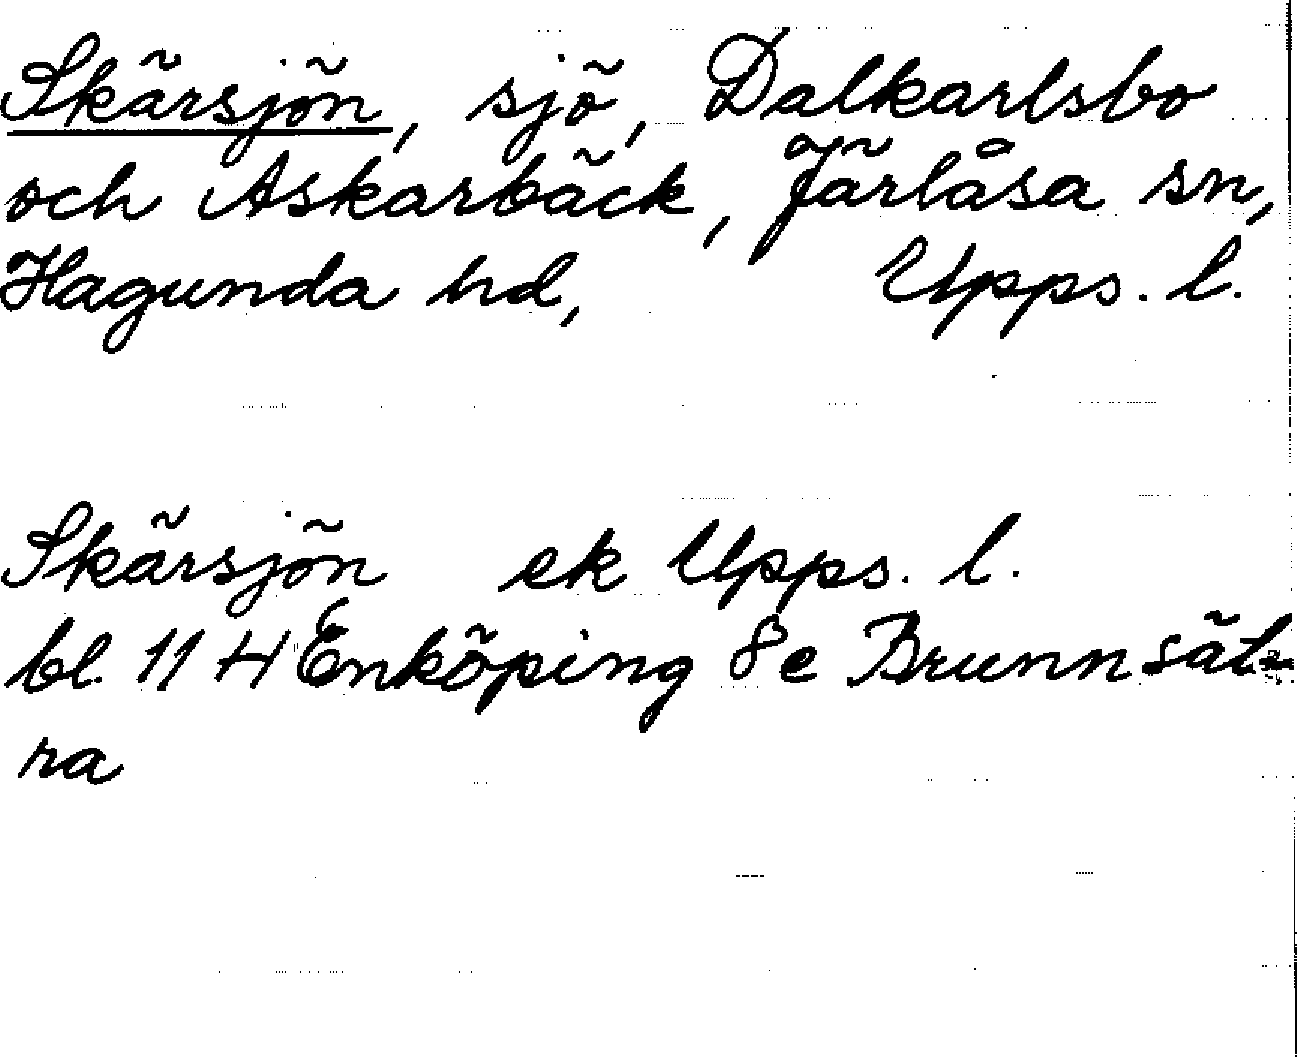 Skärsjön, sjö, Dalkarlsbo
och Askarbäck, Järlåsa sn,
Hagunda hd, Upps. l.
Skärsjön ek Upps. l.
bl. 11 H Enköping 8e Brunnsät-
ra